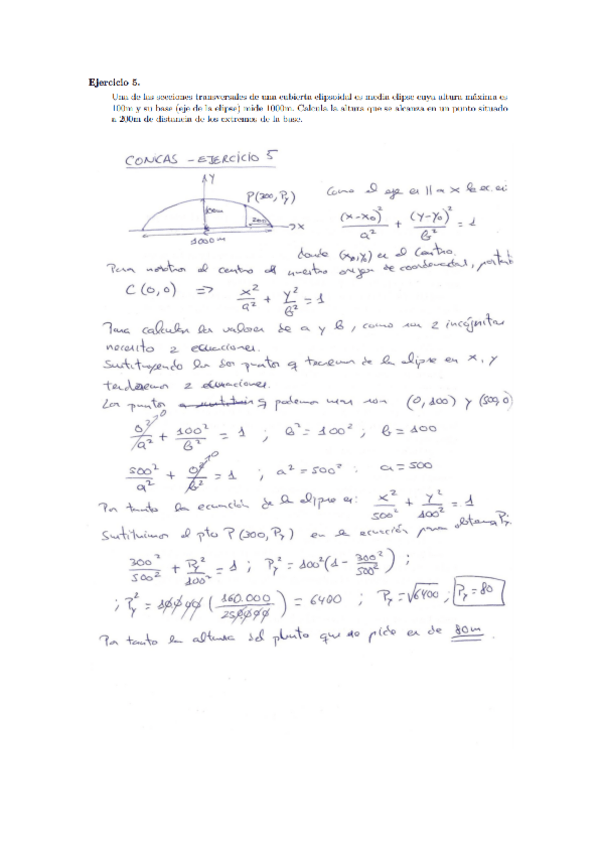 Ejercicio 5.
Una de las secciones transversales de una cubierta elipsoidal es media elipse cuya altura máxima es
100m y su base (eje de la elipse) mide 1000m. Calcula la altura que se alcanza en un punto situado
a 200m de distancia de los extremos de la base.
CONICAS - EJERCICIO 5
Y
P(300, Py)
100m
200
X
1000 m
Como el eje es || a x la ec. es:
(x-x₀)²/a² + (y-y₀)²/b² = 1
donde (x₀,y₀) es el centro.
Para nosotros el centro es nuestro origen de coordenadas, por tanto
C(0,0) => x²/a² + y²/b² = 1
Para calcular los valores de a y b, como son 2 incógnitas
necesito 2 ecuaciones.
Sustituyendo los dos puntos q tenemos de la elipse en x, y
tendremos 2 ecuaciones.
Los puntos q podemos usar son (0,100) y (500,0)
0²/a² + 100²/b² = 1 ; b² = 100² ; b = 100
500²/a² + 0²/b² = 1 ; a² = 500² ; a = 500
Por tanto la ecuación de la elipse es: x²/500² + y²/100² = 1
Sustituimos el pto P(300, Py) en la ecuación para obtener Py
300²/500² + Py²/100² = 1 ; Py² = 100²(1 - 300²/500²) ;
; Py² = 10000 (160.000/250000) = 6400 ; Py = √6400 ; Py = 80
Por tanto la altura del punto que nos pide es de 80m.